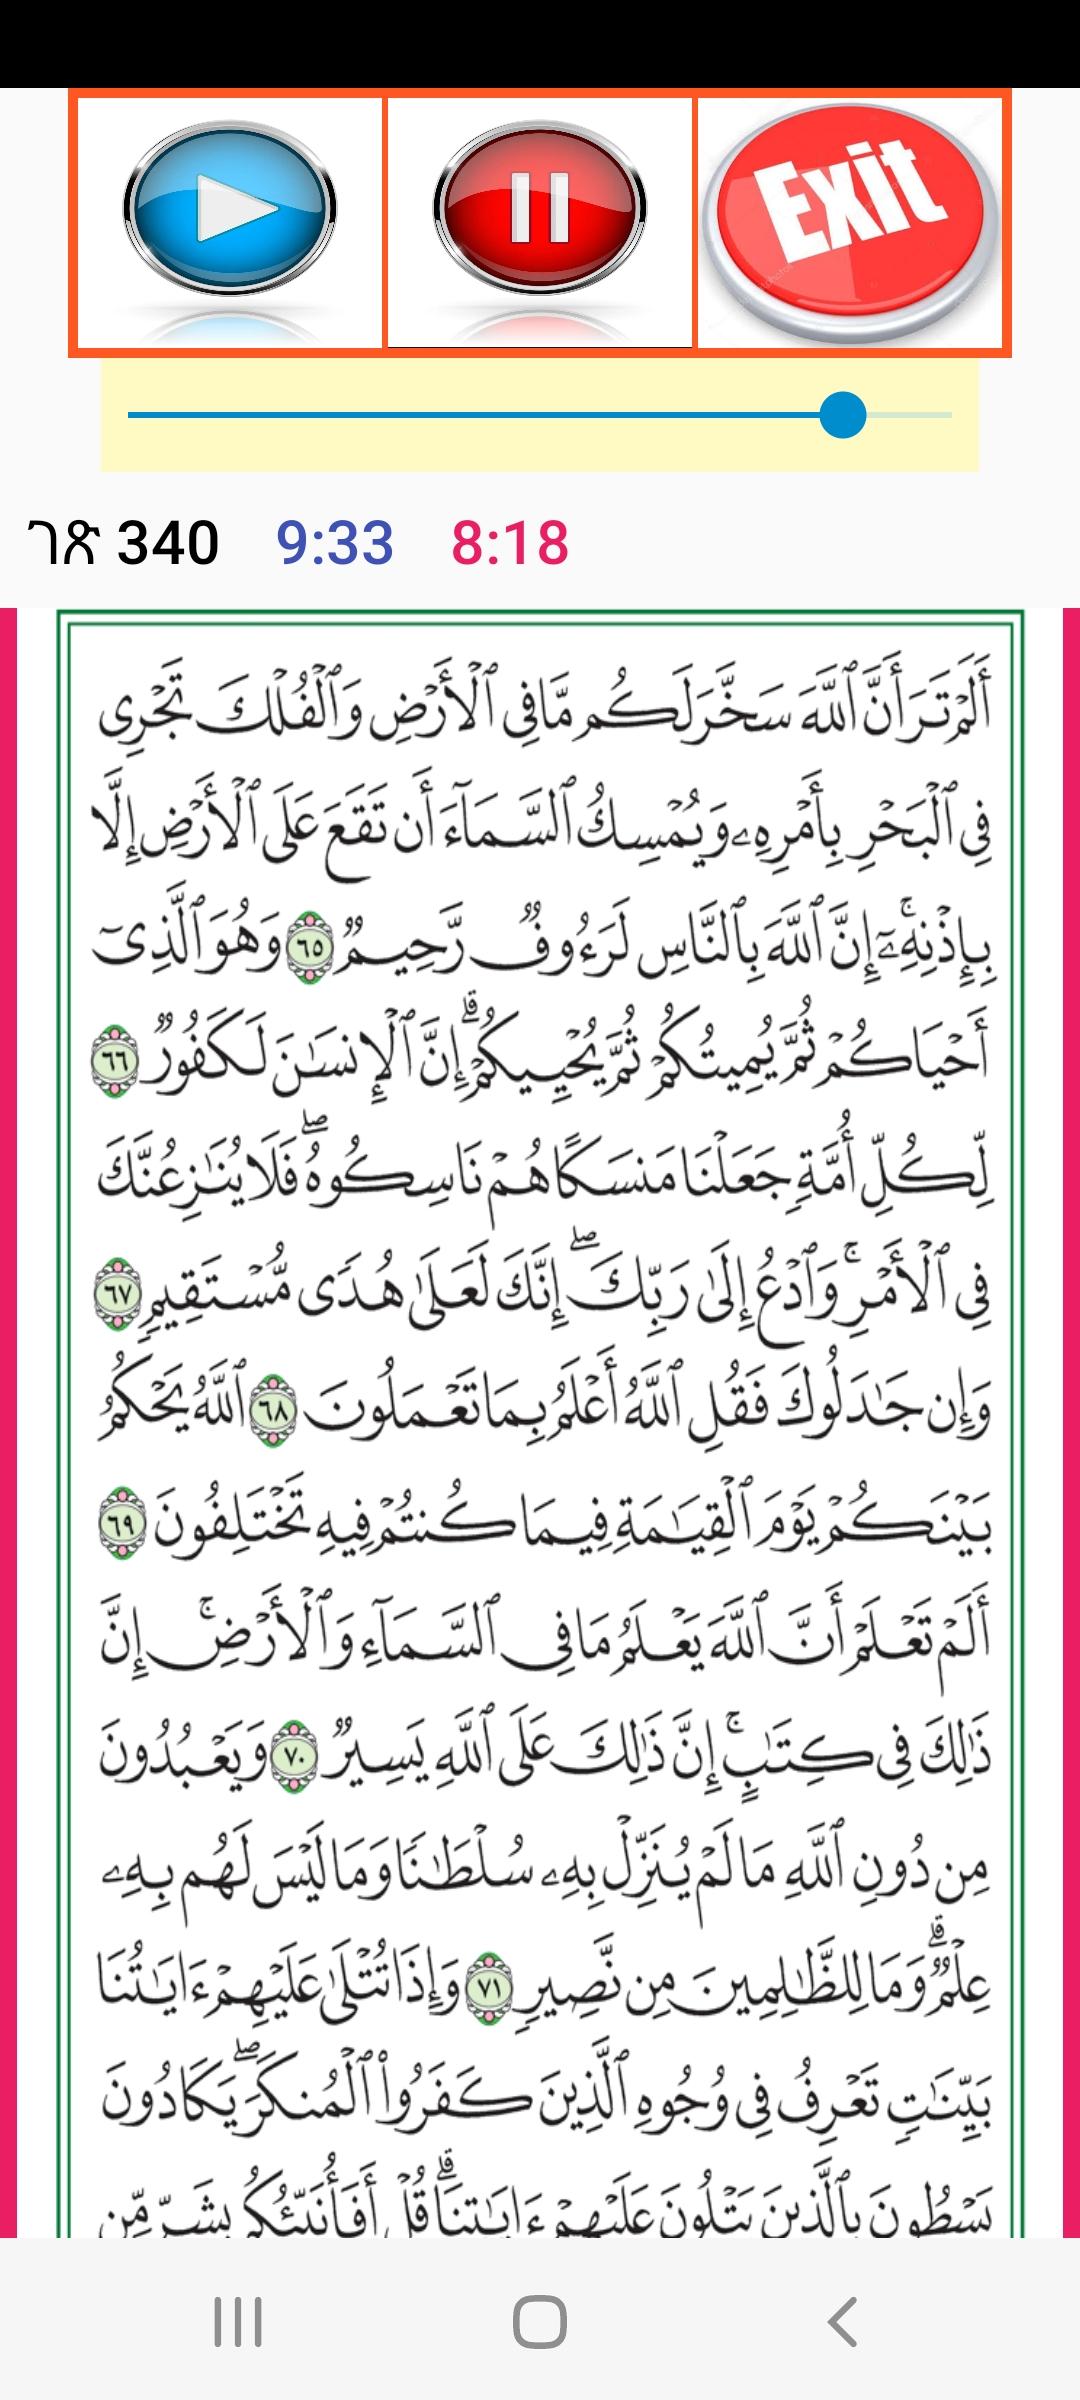 Exit
ገጽ 340 9:33 8:18
أَلَمْ تَرَ أَنَّ ٱللَّهَ سَخَّرَ لَكُم مَّا فِى ٱلْأَرْضِ وَٱلْفُلْكَ تَجْرِى
فِى ٱلْبَحْرِ بِأَمْرِهِۦ وَيُمْسِكُ ٱلسَّمَآءَ أَن تَقَعَ عَلَى ٱلْأَرْضِ إِلَّا
بِإِذْنِهِۦٓ ۚ إِنَّ ٱللَّهَ بِٱلنَّاسِ لَرَءُوفٌ رَّحِيمٌ ٦٥ وَهُوَ ٱلَّذِىٓ
أَحْيَاكُمْ ثُمَّ يُمِيتُكُمْ ثُمَّ يُحْيِيكُمْ ۗ إِنَّ ٱلْإِنسَـٰنَ لَكَفُورٌ ٦٦
لِّكُلِّ أُمَّةٍ جَعَلْنَا مَنسَكًا هُمْ نَاسِكُوهُ ۖ فَلَا يُنَـٰزِعُنَّكَ
فِى ٱلْأَمْرِ ۚ وَٱدْعُ إِلَىٰ رَبِّكَ ۖ إِنَّكَ لَعَلَىٰ هُدًى مُّسْتَقِيمٍ ٦٧
وَإِن جَـٰدَلُوكَ فَقُلِ ٱللَّهُ أَعْلَمُ بِمَا تَعْمَلُونَ ٦٨ ٱللَّهُ يَحْكُمُ
بَيْنَكُمْ يَوْمَ ٱلْقِيَـٰمَةِ فِيمَا كُنتُمْ فِيهِ تَخْتَلِفُونَ ٦٩
أَلَمْ تَعْلَمْ أَنَّ ٱللَّهَ يَعْلَمُ مَا فِى ٱلسَّمَآءِ وَٱلْأَرْضِ ۗ إِنَّ
ذَٰلِكَ فِى كِتَـٰبٍ ۚ إِنَّ ذَٰلِكَ عَلَى ٱللَّهِ يَسِيرٌ ٧٠ وَيَعْبُدُونَ
مِن دُونِ ٱللَّهِ مَا لَمْ يُنَزِّلْ بِهِۦ سُلْطَـٰنًا وَمَا لَيْسَ لَهُم بِهِۦ
عِلْمٌ ۗ وَمَا لِلظَّـٰلِمِينَ مِن نَّصِيرٍ ٧١ وَإِذَا تُتْلَىٰ عَلَيْهِمْ ءَايَـٰتُنَا
بَيِّنَـٰتٍ تَعْرِفُ فِى وُجُوهِ ٱلَّذِينَ كَفَرُوا۟ ٱلْمُنكَرَ ۖ يَكَادُونَ
يَسْطُونَ بِٱلَّذِينَ يَتْلُونَ عَلَيْهِمْ ءَايَـٰتِنَا ۗ قُلْ أَفَأُنَبِّئُكُم بِشَرٍّ مِّن